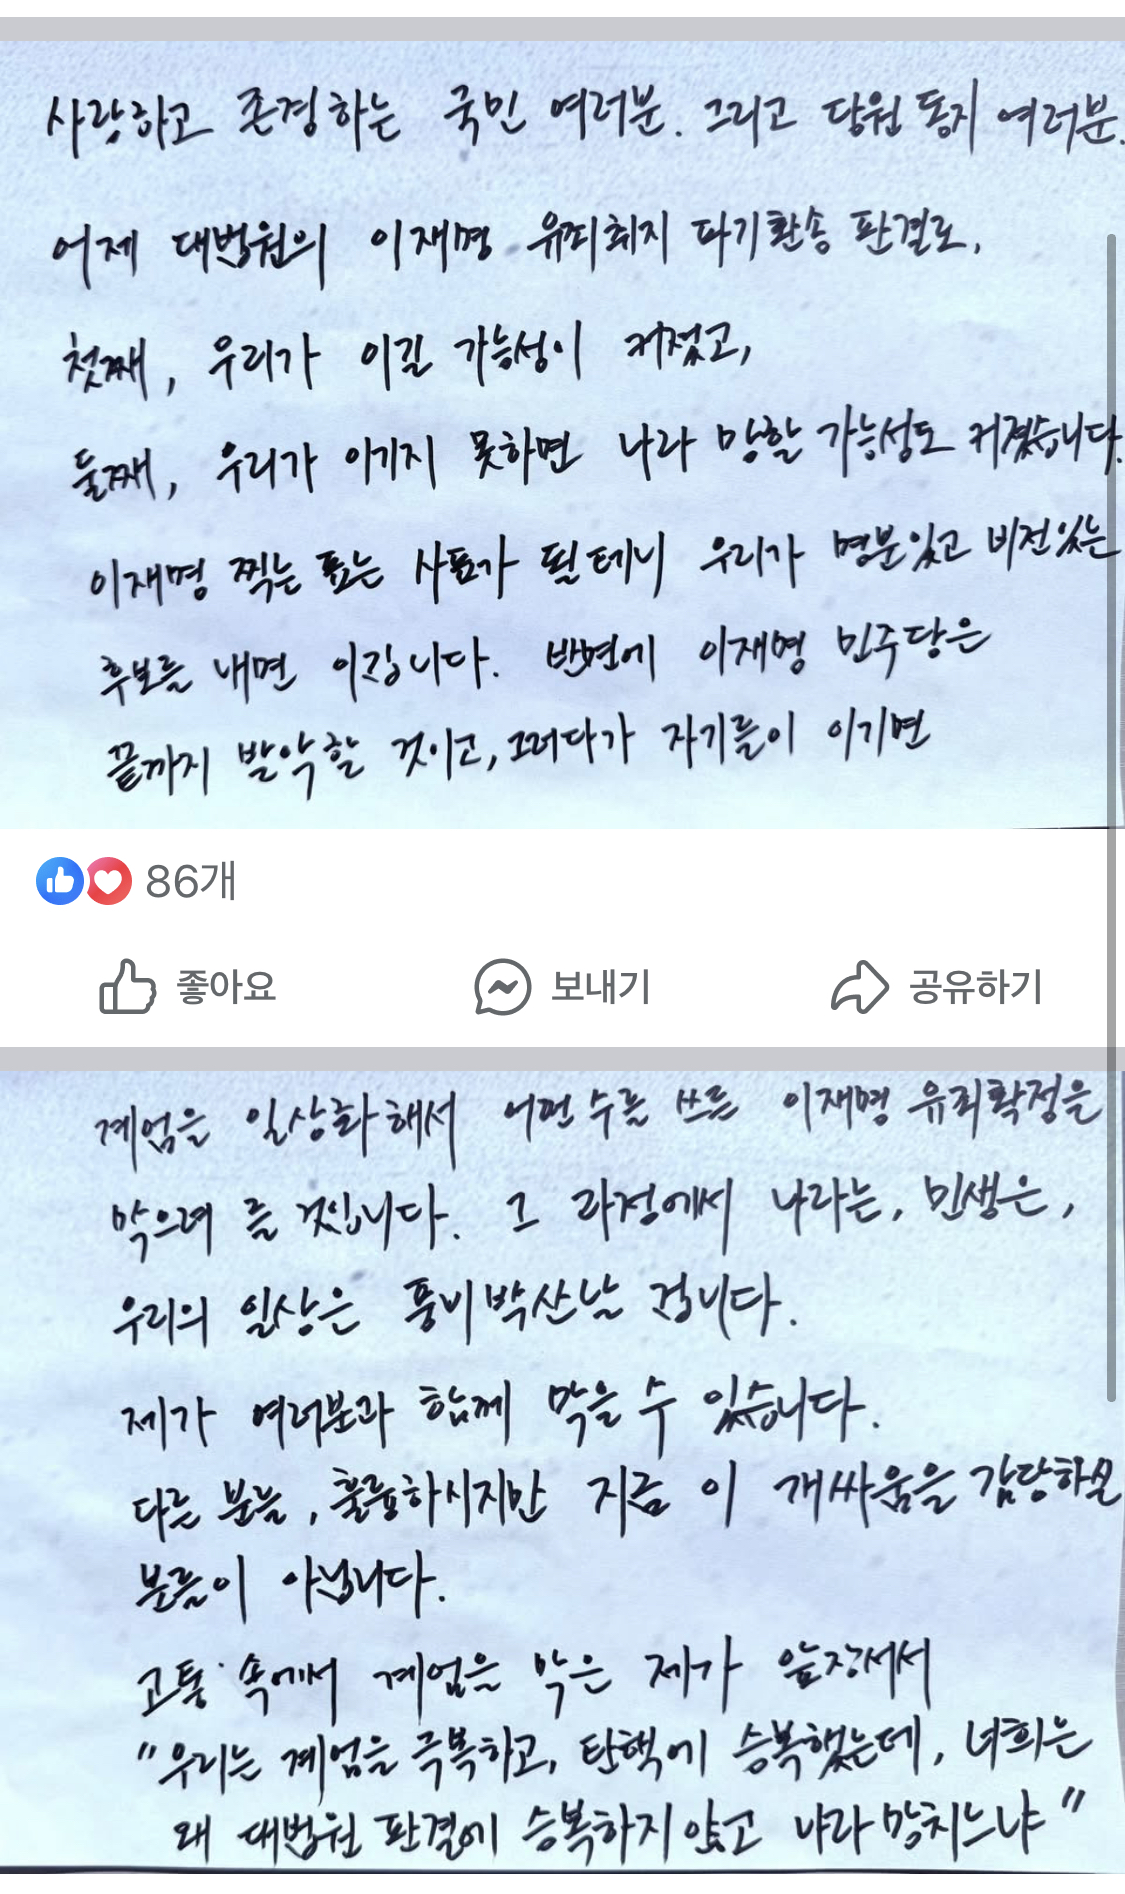 사랑하고 존경하는 국민 여러분. 그리고 당원 동지 여러분.
어제 대법원의 이재명 유죄취지 파기환송 판결로,
첫째, 우리가 이길 가능성이 커졌고,
둘째, 우리가 이기지 못하면 나라 망할 가능성도 커졌습니다.
이재명 찍는 표는 사표가 될 테니 우리가 명분있고 비전있는
후보를 내면 이깁니다. 반면에 이재명 민주당은
끝까지 발악할 것이고, 그러다가 자기들이 이기면
86개
좋아요 보내기 공유하기
계엄을 일상화해서 어떤 수를 쓰든 이재명 유죄확정을
막으려 들 것입니다. 그 과정에서 나라는, 민생은,
우리의 일상은 풍비박산날 겁니다.
제가 여러분과 함께 막을 수 있습니다.
다른 분들, 훌륭하시지만 지금 이 개싸움을 감당하실
분들이 아닙니다.
고통 속에서 계엄을 막은 제가 앞장서서
"우리는 계엄을 극복하고, 탄핵에 승복했는데, 너희는
왜 대법원 판결에 승복하지 않고 나라 망치느냐"